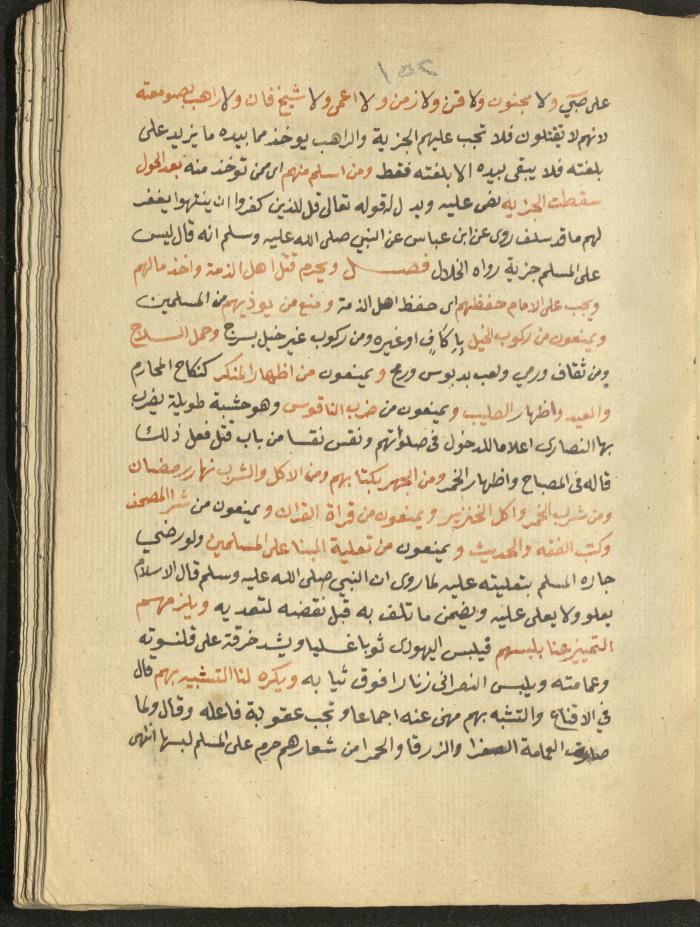 ١٥٢
على صبي ولا مجنون ولا قن ولا زمن ولا اعمى ولا شيخ فان ولا راهب بصومعته
لانهم لا يقتلون فلا تجب عليهم الجزية والراهب يوخذ مما بيده ما يزيد على
بلغته فلا يبقى بيده الا بلغته فقط ومن اسلم منهم اى ممن توخذ منه بعد الحول
سقطت الجزيه نص عليه ويدل له قوله تعالى قل للذين كفروا ان ينتهوا يغفر
لهم ما قد سلف روى عن ابن عباس عن النبي صلى الله عليه وسلم انه قال ليس
على المسلم جزية رواه الخلال فصل ويحرم قتل اهل الذمة واخذ مالهم
ويجب على الامام حفظهم اى حفظ اهل الذمة ومنع من يوذيهم من المسلمين
ويمنعون من ركوب الخيل بإكافٍ اوغيره ومن ركوب غير خيل بسرج وحمل السلاح
ومن ثقاف ورمي ولعب بدبوس ورمح ويمنعون من اظهار المنكر كنكاح المحارم
والعيد واظهار الصليب ويمنعون من ضرب الناقوس وهو خشبة طويلة يضرب
بها النصارى اعلاما للدخول في صلوٰتهم ونقس نقسا من باب قتل فعل ذلك
قاله فى المصباح واظهار الخمر ومن الجهر بكتابهم ومن الاكل والشرب نهار رمضان
ومن شرب الخمر واكل الخنزير ويمنعون من قراة القران ويمنعون من شر المصحف
وكتب الفقه والحديث ويمنعون من تعلية البنا على المسلمين ولو رضي
جاره المسلم بتعليته عليه لما روى ان النبي صلى الله عليه وسلم قال الاسلام
يعلو ولا يعلى عليه ويضمن ما تلف به قبل نقضه لتعديه ويلزمهم
التمييز عنا بلبسهم فيلبس اليهودى ثوبا عسليا ويشد خرقة على قلنسوته
وعمامته ويلبس النصرانى زنارا فوق ثيابه ويكره لنا التشبيه بهم قال
في الاقناع والتشبه بهم منهى عنه اجماعا وتجب عقوبة فاعله وقال ولما
صارت العمامة الصفرا والزرقا والحمرا من شعارهم حرم على المسلم لبسها انتهى